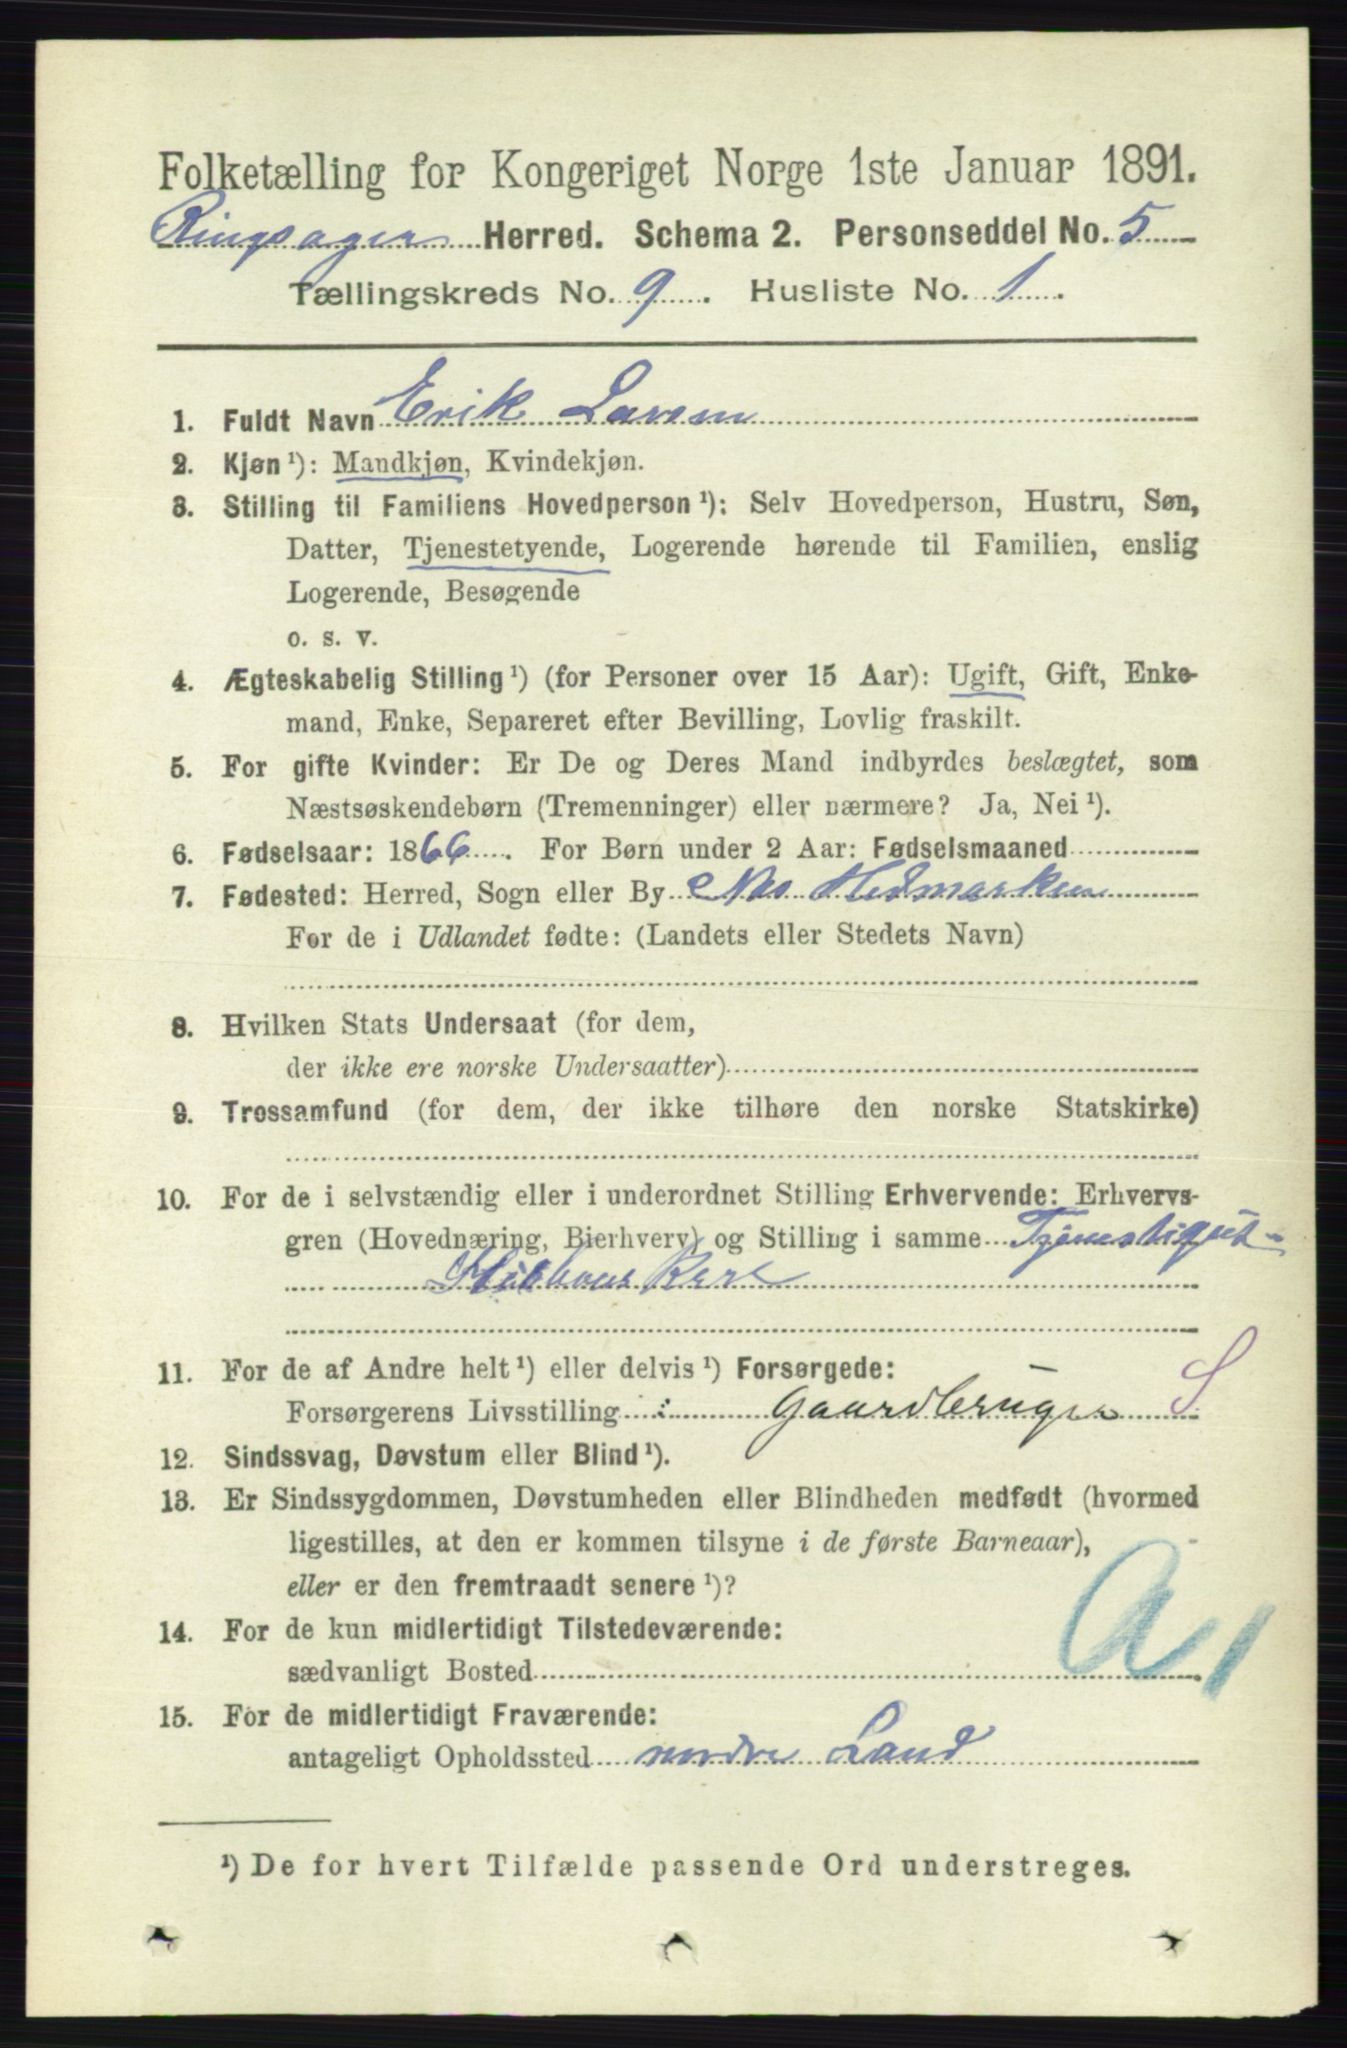 Folketælling for Kongeriget Norge 1ste Januar 1891.
Ringsager Herred. Schema 2. Personseddel No. 5
Tællingskreds No. 9. Husliste No. 1.
1. Fuldt Navn Erik Larsen
2. Kjøn¹): Mandkjøn, Kvindekjøn.
3. Stilling til Familiens Hovedperson¹): Selv Hovedperson, Hustru, Søn,
Datter, Tjenestetyende, Logerende hørende til Familien, enslig
Logerende, Besøgende
o. s. v.
4. Ægteskabelig Stilling¹) (for Personer over 15 Aar): Ugift, Gift, Enke-
mand, Enke, Separeret efter Bevilling, Lovlig fraskilt.
5. For gifte Kvinder: Er De og Deres Mand indbyrdes beslægtet, som
Næstsøskendebørn (Tremenninger) eller nærmere? Ja, Nei¹).
6. Fødselsaar: 1866. For Børn under 2 Aar: Fødselsmaaned
7. Fødested: Herred, Sogn eller By Nes Hedmarken
For de i Udlandet fødte: (Landets eller Stedets Navn)
8. Hvilken Stats Undersaat (for dem,
der ikke ere norske Undersaatter)
9. Trossamfund (for dem, der ikke tilhøre den norske Statskirke)
10. For de i selvstændig eller i underordnet Stilling Erhvervende: Erhvervs-
gren (Hovednæring, Bierhverv) og Stilling i samme Tjenestegut
11. For de af Andre helt¹) eller delvis¹) Forsørgede:
Forsørgerens Livsstilling : Gaardbruger S
12. Sindssvag, Døvstum eller Blind¹).
13. Er Sindssygdommen, Døvstumheden eller Blindheden medfødt (hvormed
ligestilles, at den er kommen tilsyne i de første Barneaar),
eller er den fremtraadt senere¹)?
14. For de kun midlertidigt Tilstedeværende:
sædvanligt Bosted
15. For de midlertidigt Fraværende:
antageligt Opholdssted nordre Land
¹) De for hvert Tilfælde passende Ord understreges.